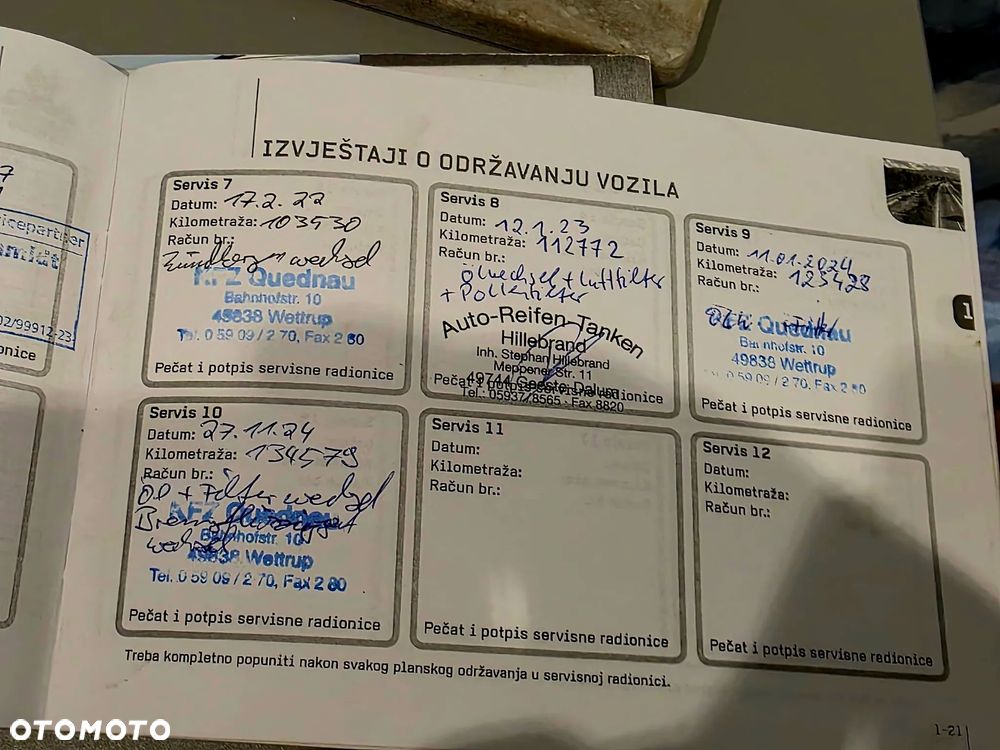 IZVJEŠTAJI O ODRŽAVANJU VOZILA
Servis 7
Datum: 17.2.22
Kilometraža: 103530
Račun br.:
wechsel
KFZ Quednau
Bahnhofstr. 10
49838 Wettrup
Tel. 0 59 09 / 2 70, Fax 2 80
Pečat i potpis servisne radionice
Servis 8
Datum: 12.1.23
Kilometraža: 112772
Račun br.:
Ölwechsel + Luftfilter
+ Pollenfilter
Auto-Reifen-Tanken
Hillebrand
Inh. Stephan Hillebrand
Meppener Str. 11
49744 Geeste-Dalum
Pečat i potpis servisne radionice
Tel.: 05937/8565 - Fax 8820
Servis 9
Datum: 11.01.2024
Kilometraža: 123428
Račun br.:
Quednau
Bahnhofstr. 10
49838 Wettrup
0 59 09 / 2 70, Fax 2 80
Pečat i potpis servisne radionice
1
Servis 10
Datum: 27.11.24
Kilometraža: 134579
Račun br.:
Öl + Filter wechsel
KFZ Quednau
Bremsflüssigkeit
Bahnhofstr. 10
wechsel
49838 Wettrup
Tel. 0 59 09 / 2 70, Fax 2 80
Pečat i potpis servisne radionice
Servis 11
Datum:
Kilometraža:
Račun br.:
Pečat i potpis servisne radionice
Servis 12
Datum:
Kilometraža:
Račun br.:
Pečat i potpis servisne radionice
Treba kompletno popuniti nakon svakog planskog održavanja u servisnoj radionici.
1-21
OTOMOTO